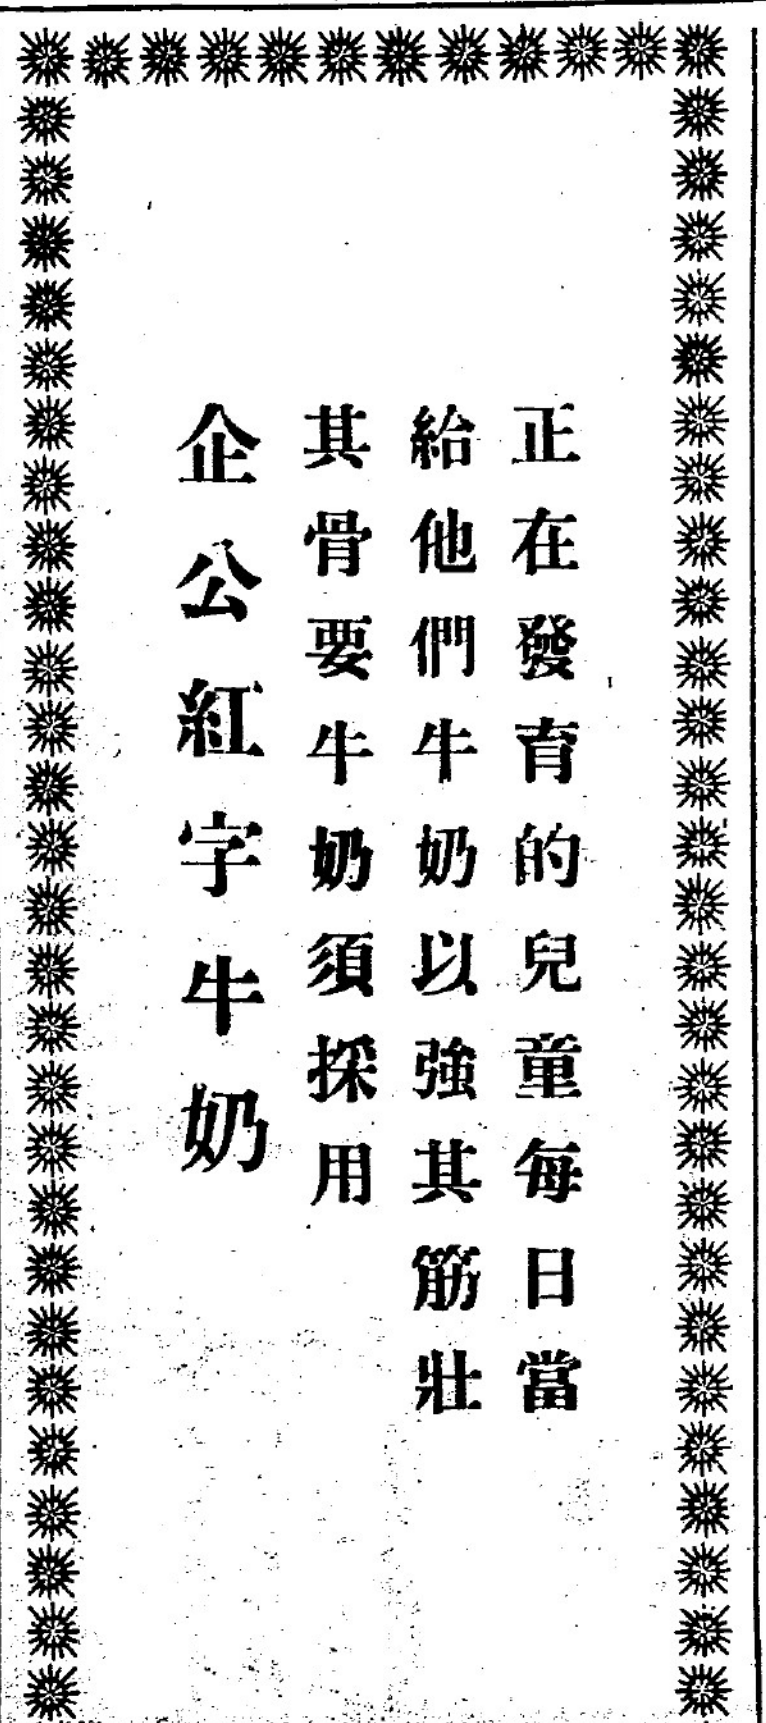 正在發育的兒童每日當
給他們牛奶以強其筋壯
其骨要牛奶須採用
企公紅字牛奶